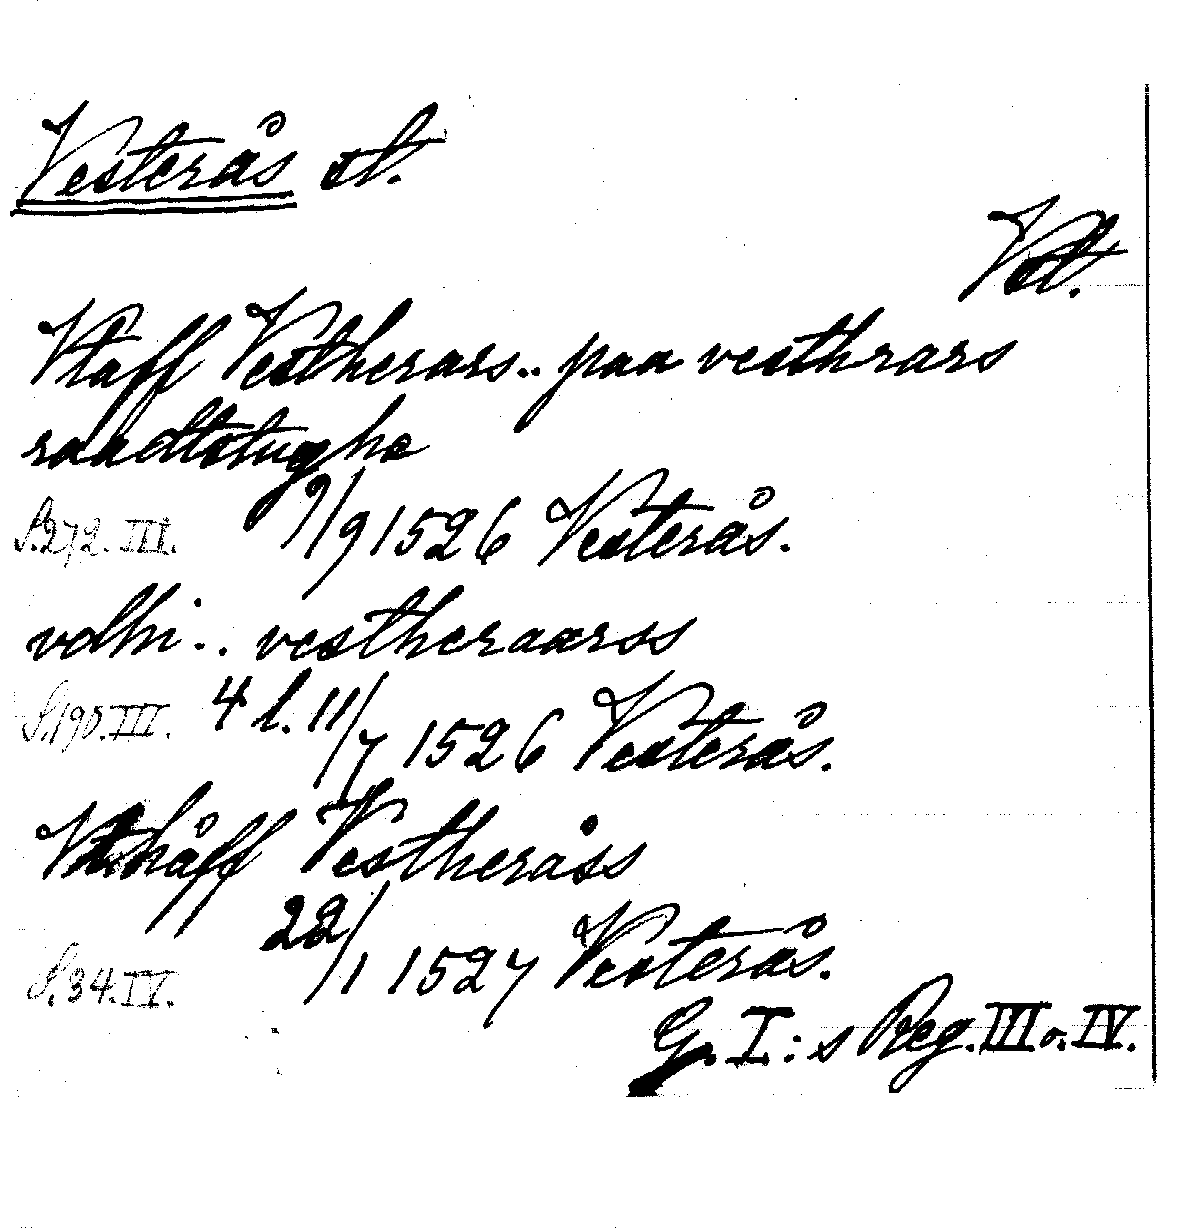 Vesterås st.
Vstl.
Vtaff Vestherars.. paa vesthrars
raadtstughe
S.272.III. 9/9 1526 Vesterås.
vdhi.. vestheraarss
S.190.III. 4 l. 11/7 1526 Vesterås.
Vthåff Vestheråss
S.34.IV. 22/1 1527 Vesterås.
G. I:s Reg. III o. IV.